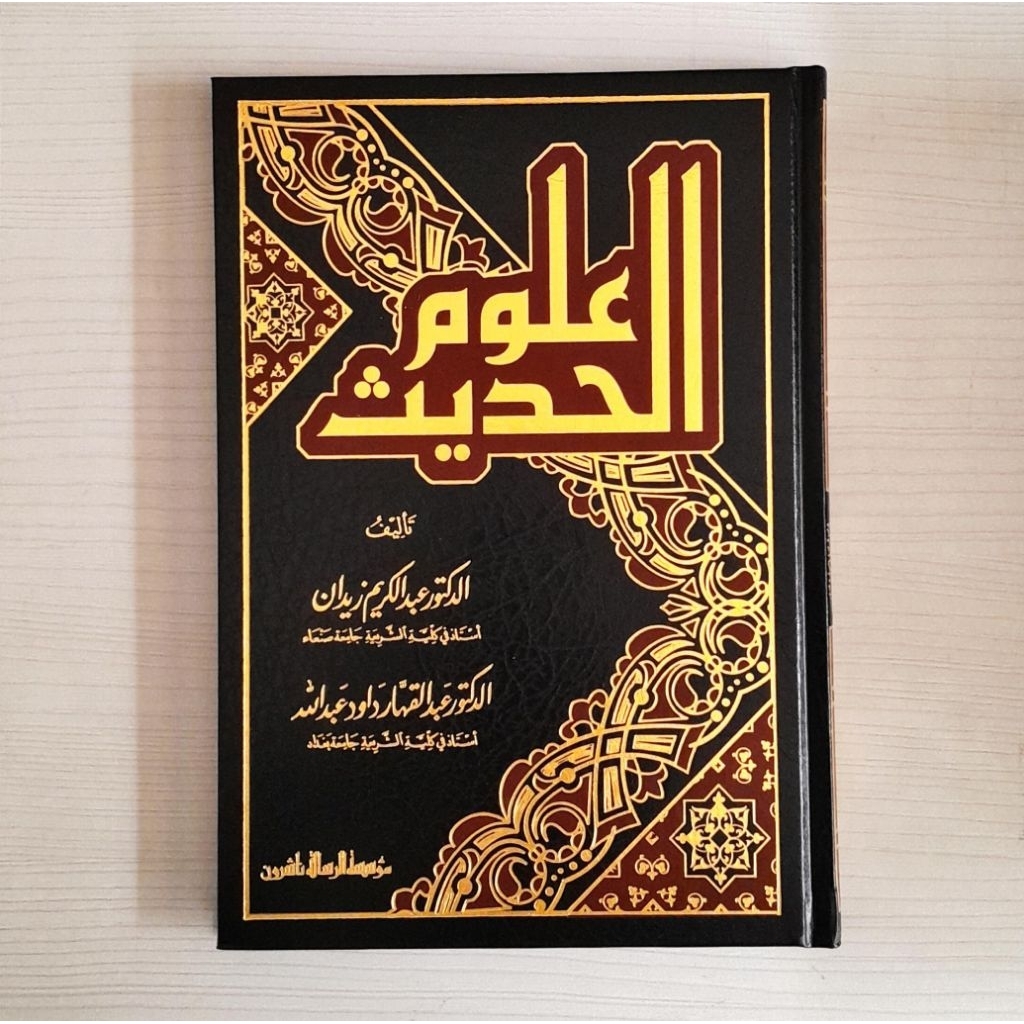 علوم
الحديث
تأليف
الدكتور عبد الكريم زيدان
أستاذ في كلية التربية جامعة صنعاء
الدكتور عبد القهار داود عبد الله
أستاذ في كلية التربية جامعة بغداد
مؤسسة الرسالة ناشرون